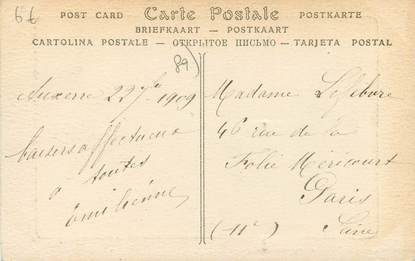 6€
POST CARD Carte Postale POSTKARTE
BRIEFKAART — POSTKAART
CARTOLINA POSTALE — ОТКРЫТОЕ ПИСЬМО — TARJETA POSTAL
89)
Auxerre 22 1909
baisers affectueux
à toutes
Emilienne
Madame Lefebvre
46 Rue de la
Folie Méricourt
Paris
(11e) Seine